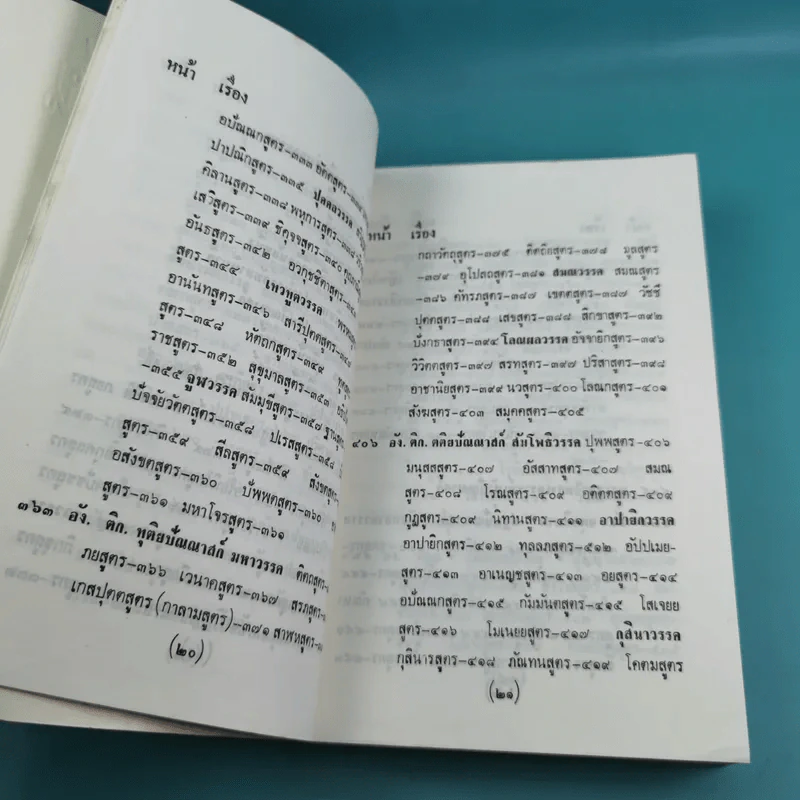 หน้า เรื่อง
อปัณณกสูตร-๓๓๓ อัตตสูตร-
ปาปณิกสูตร-๓๓๕ ปุคคลวรรค
คิลานสูตร-๓๓๘ พหุการสูตร-๓๓๘
เสวิสูตร-๓๓๙ ชิคุจฉสูตร-๓๔๐
อันธสูตร-๓๔๒ อวกุชชิตาสูตร-
สูตร-๓๔๔ เทวทูตวรรค
อานันทสูตร-๓๔๖ สารีปุตตสูตร-
สูตร-๓๔๘ หัตถกสูตร-๓๔๙
ราชสูตร-๓๕๒ สุขุมาลสูตร-๓๕๓
-๓๕๕ จูฬวรรค สัมมุขีสูตร-๓๕๗
ปัจจัยวัตตสูตร-๓๕๘ ปเรสสูตร-๓๕๘
สูตร-๓๕๙ สีลสูตร-๓๕๙ สังขตสูตร-
อสังขตสูตร-๓๖๐ ปัพพตสูตร-๓๖๐
สูตร-๓๖๑ มหาโจรสูตร-๓๖๑
๓๖๓ อัง. ติก. ทุติยปัณณาสก์ มหาวรรค ติตถสูตร-
ภยสูตร-๓๖๖ เวนาคสูตร-๓๖๗ สรภสูตร-
เกสปุตตสูตร (กาลามสูตร)-๓๗๑ สาฬหสูตร-
(๒๐)
หน้า เรื่อง
กถาวัตถุสูตร-๓๗๕ ติตถิยสูตร-๓๗๘ มูลสูตร
-๓๗๙ อุโปสถสูตร-๓๘๑ สมณวรรค สมณสูตร
-๓๘๖ คัทรภสูตร-๓๘๗ เขตตสูตร-๓๘๗ วัชชี
ปุตตสูตร-๓๘๘ เสขสูตร-๓๘๘ สิกขาสูตร-๓๙๒
ปังกธาสูตร-๓๙๔ โลณผลวรรค อัจจายิกสูตร-๓๙๖
วิวิตตสูตร-๓๙๗ สรทสูตร-๓๙๗ ปริสาสูตร-๓๙๘
อาชานิยสูตร-๓๙๙ นวสูตร-๔๐๐ โลณกสูตร-๔๐๑
สังฆสูตร-๔๐๓ สมุคคสูตร-๔๐๕
๔๐๖ อัง. ติก. ตติยปัณณาสก์ สัมโพธิวรรค ปุพพสูตร-๔๐๖
มนุสสสูตร-๔๐๗ อัสสาทสูตร-๔๐๗ สมณ
สูตร-๔๐๘ โรณสูตร-๔๐๙ อติตตสูตร-๔๐๙
กูฏสูตร-๔๐๙ นิทานสูตร-๔๑๑ อาปายิกวรรค
อาปายิกสูตร-๔๑๒ ทุลลภสูตร-๕๑๒ อัปปเมย-
สูตร-๔๑๓ อาเนญชสูตร-๔๑๓ อยสูตร-๔๑๔
อปัณณกสูตร-๔๑๕ กัมมันตสูตร-๔๑๕ โสเจยย
สูตร-๔๑๖ โมเนยยสูตร-๔๑๗ กุสินาวรรค
กุสินารสูตร-๔๑๘ ภัณฑนสูตร-๔๑๙ โคตมสูตร
(๒๑)